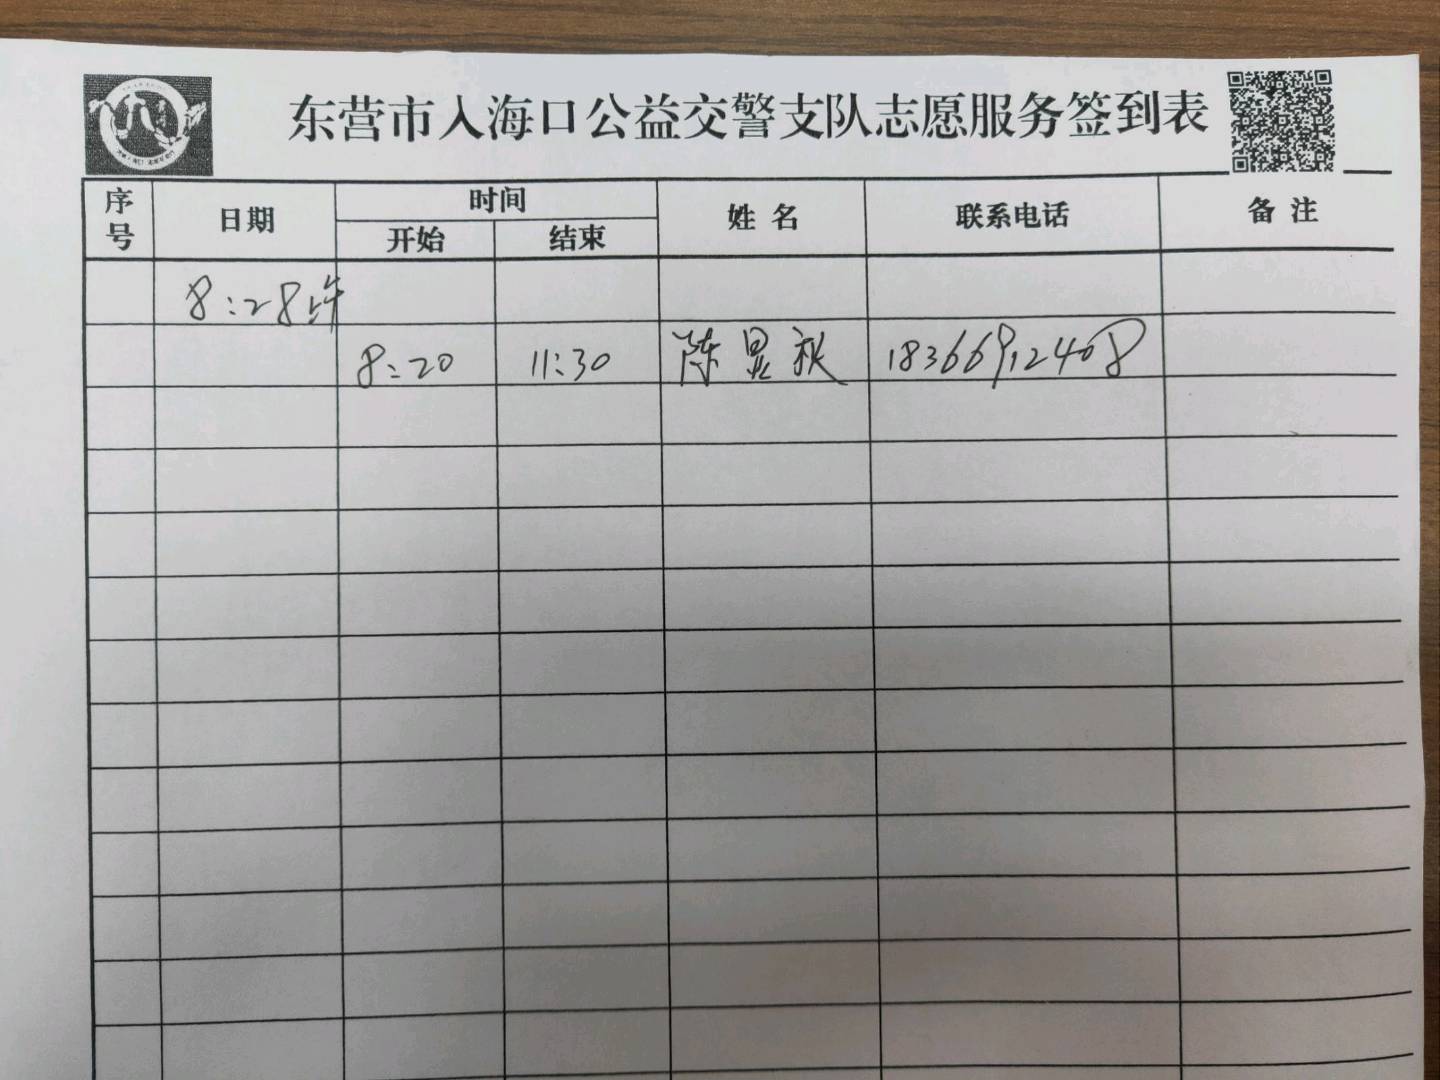 东营市入海口公益交警支队志愿服务签到表
序号 日期 时间 姓名 联系电话 备注
开始 结束
8:28上午
8:20 11:30 陈昱秋 18366912408